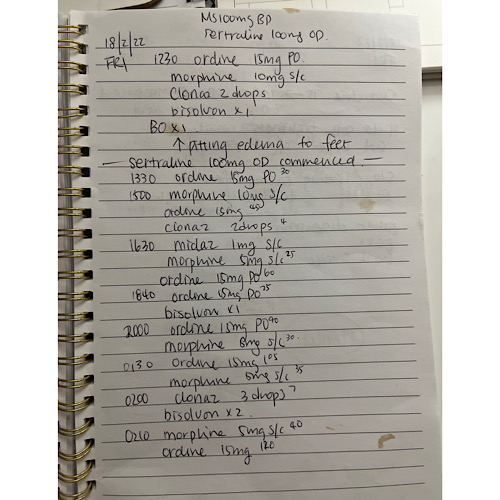 MS100mg BD
sertraline 100mg OD.
18/2/22
FRI 1230 ordine 15mg PO.
morphine 10mg s/c
Clonaz 2 drops
bisolvon x 1
BO x 1
↑ pitting edema to feet
— sertraline 100mg OD commenced. —
1330 ordine 15mg PO 30
1500 morphine 10mg s/c
ordine 15mg
clonaz 2drops 4
1630 midaz 1mg s/c
morphine 5mg s/c 25
ordine 15mg PO 60
1840 ordine 15mg PO 75
bisolvon x 1
2000 ordine 15mg PO 90
morphine 5mg s/c 30.
0130 ordine 15mg 105
morphine 5mg s/c 35
0200 clonaz 3 drops 7
bisolvon x 2.
0210 morphine 5mg s/c 40
ordine 15mg 120